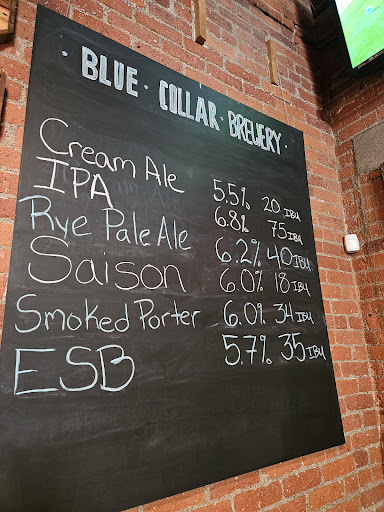 · BLUE · COLLAR · BREWERY ·
Cream Ale 5.5% 20 IBU
IPA 6.8% 75 IBU
Rye Pale Ale 6.2% 40 IBU
Saison 6.0% 18 IBU
Smoked Porter 6.0% 34 IBU
ESB 5.7% 35 IBU